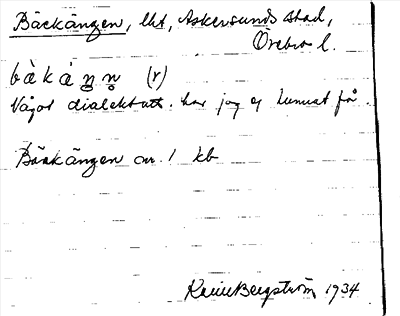 Bäckängen, lht, Askersunds stad,
Örebro l.
bàkáŋn̥ (r)
Något dialektutt. har jag ej kunnat få.
Bäckängen om. 1 kb
Karin Bergström 1934